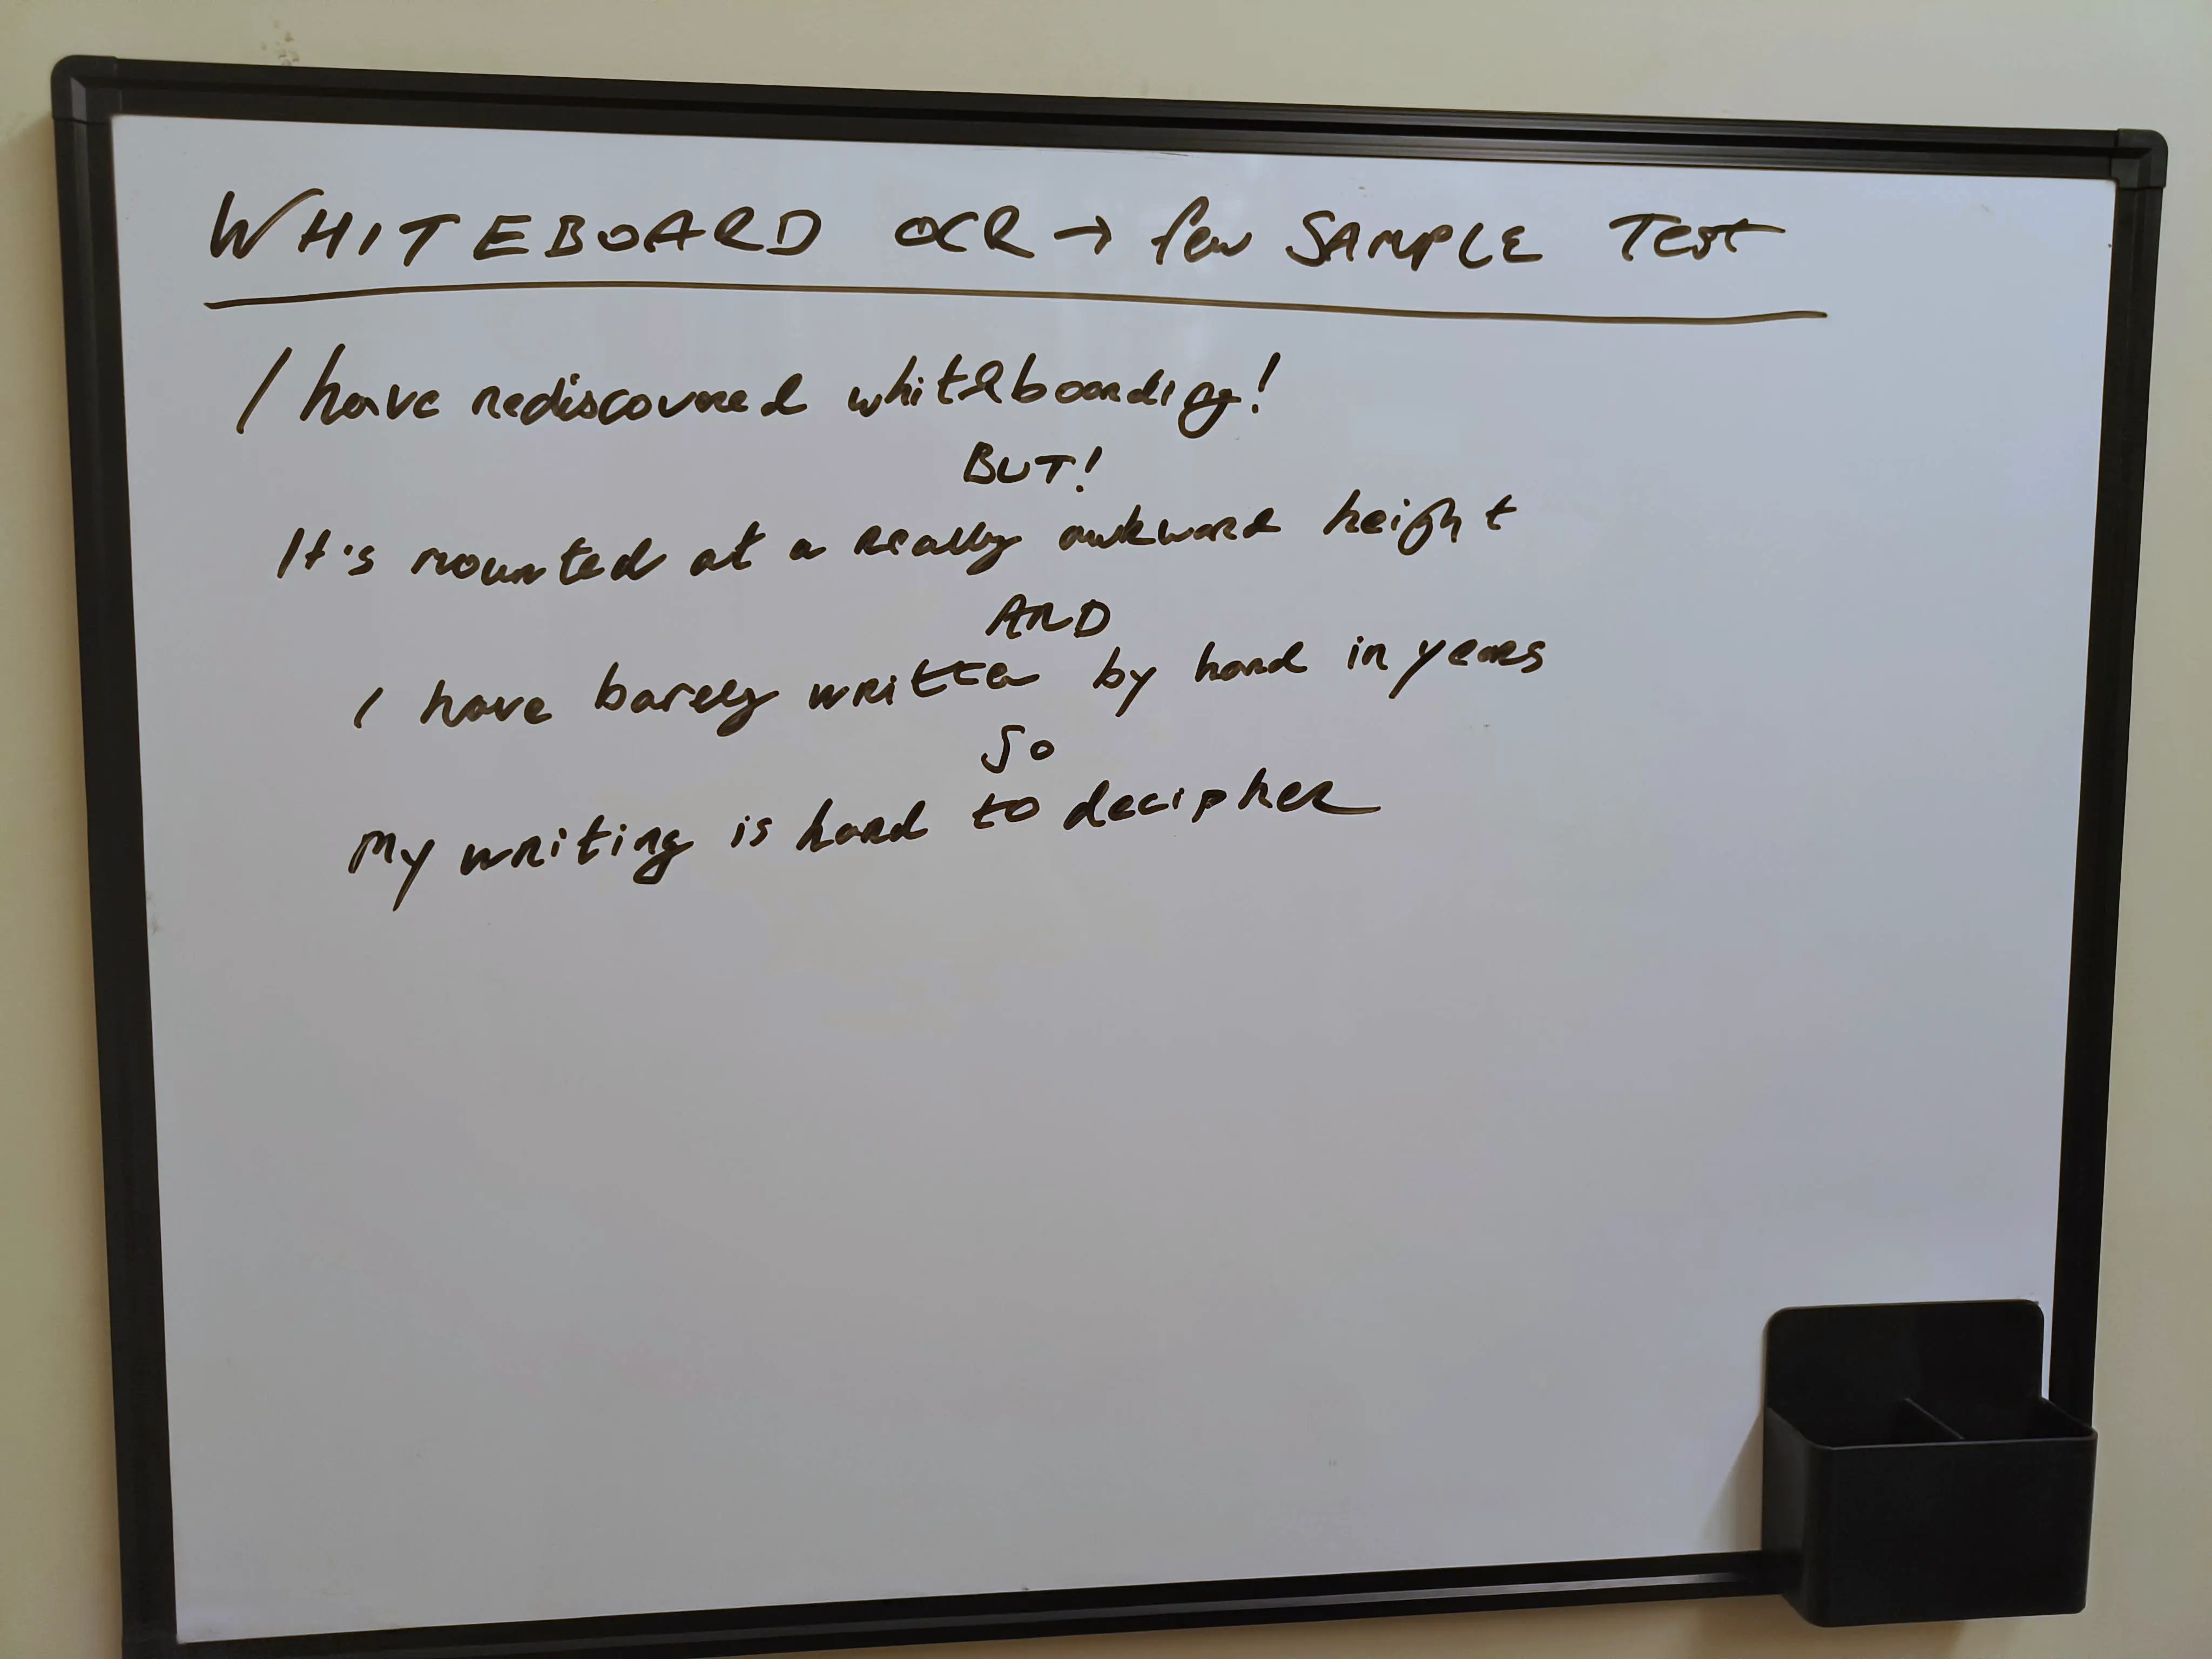 WHITEBOARD OCR → few SAMPLE TEST
I have rediscovered whiteboarding!
BUT!
It's mounted at a really awkward height
AND
I have barely written by hand in years
SO
My writing is hard to decipher